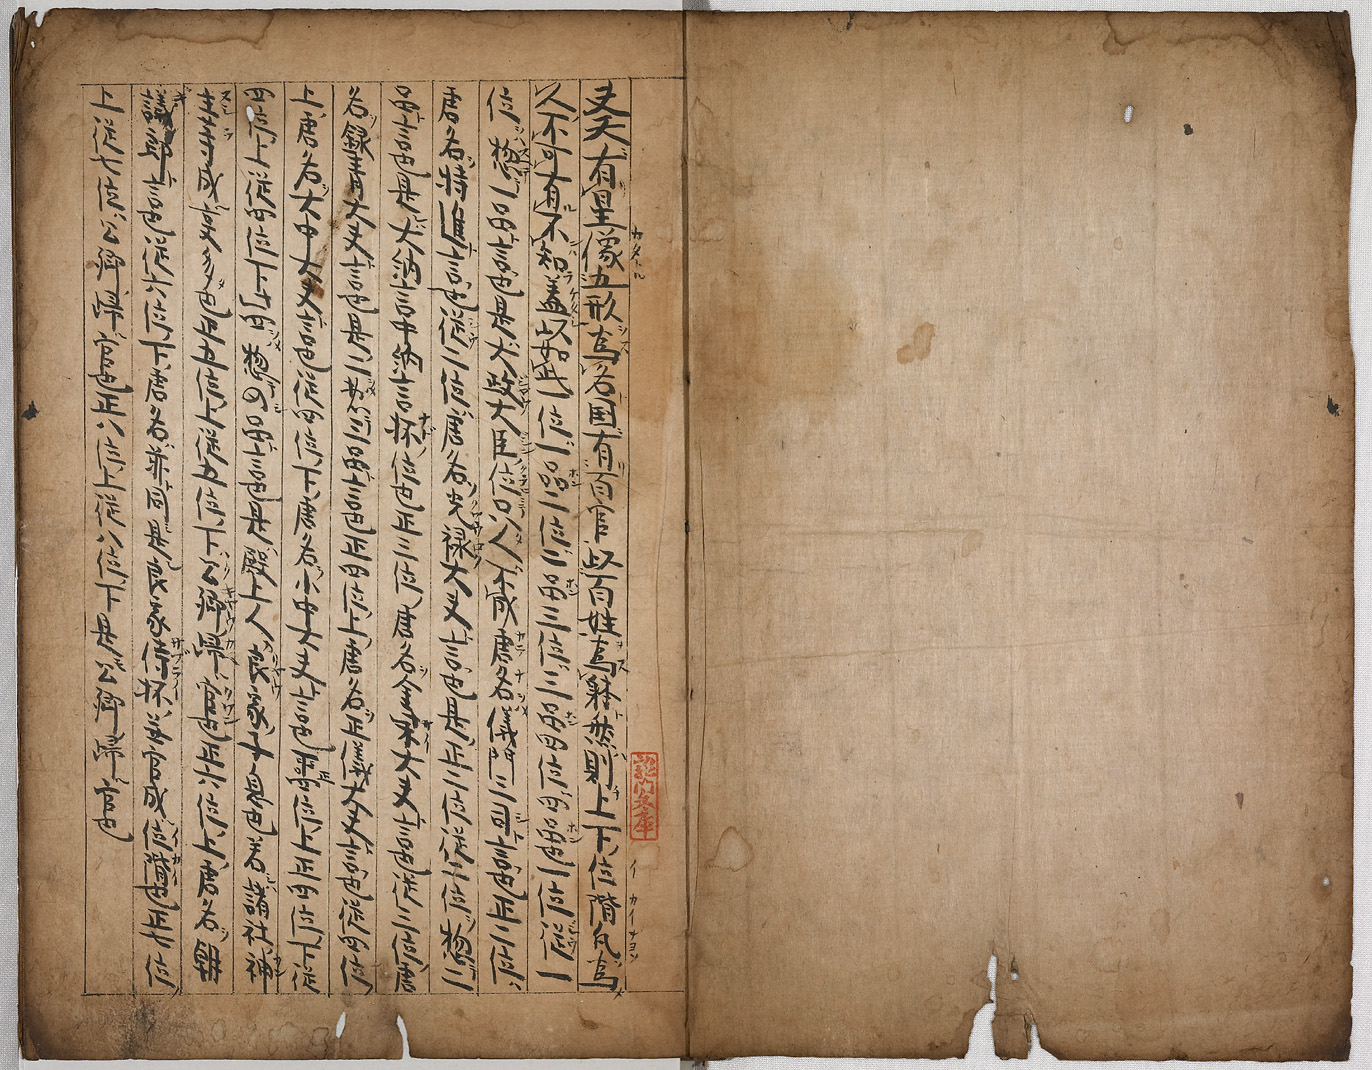 夫天有星像五形為名国有百官以百姓為躰然則上下位階凡為
人不可有不知蓋以如此一位一品二位二品三位三品四位四品也一位従一
位惣一品言也是大政大臣位口人不成唐名儀門三司言也正二位
唐名特進言也従二位唐名光禄大夫言也是正二位従二位惣二
品言也是大納言中納言抔位也正三位唐名金紫大夫言也従三位唐
名録青大夫言也是二惣三品言也正四位上唐名正儀大夫言也従四位
上唐名大中大夫言也従四位下唐名小中大夫言也正四位上正四位下従
四位上従四位下四惣四品言也是殿上人良家子息也若諸社神
主寺成言多也正五位上従五位下公卿帰官也正六位上唐名朝
議郎言也従六位下唐名亦同是良家侍抔並官成位階也正七位
上従七位公卿帰官也正八位上従八位下是公卿帰官也